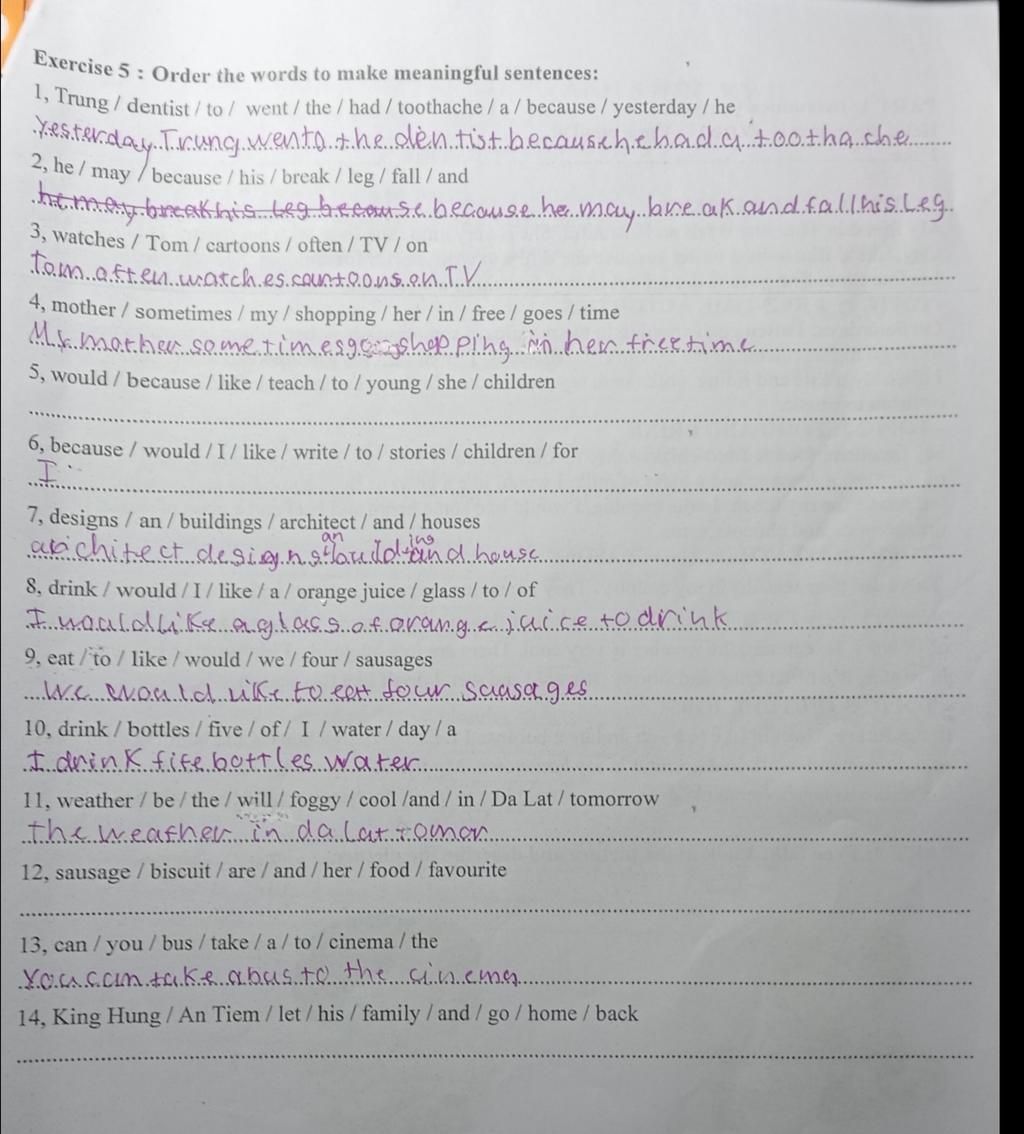 Exercise 5 : Order the words to make meaningful sentences:
1, Trung / dentist / to / went / the / had / toothache / a / because / yesterday / he
Yesterday Trung wento the dentist because he had a toothache
2, he / may / because / his / break / leg / fall / and
he may break his leg because because he may break and fall his leg
3, watches / Tom / cartoons / often / TV / on
Tom often watches cartoons on TV
4, mother / sometimes / my / shopping / her / in / free / goes / time
My mother sometimes go shopping in her free time
5, would / because / like / teach / to / young / she / children
6, because / would / I / like / write / to / stories / children / for
I
7, designs / an / buildings / architect / and / houses
an ing
architect designs build and house
8, drink / would / I / like / a / orange juice / glass / to / of
I would like a glass of orange juice to drink
9, eat / to / like / would / we / four / sausages
We would like to eat four sausages
10, drink / bottles / five / of / I / water / day / a
I drink fife bottles water
11, weather / be / the / will / foggy / cool /and / in / Da Lat / tomorrow
the weather in da lat tomor
12, sausage / biscuit / are / and / her / food / favourite
13, can / you / bus / take / a / to / cinema / the
You can take a bus to the cinema
14, King Hung / An Tiem / let / his / family / and / go / home / back